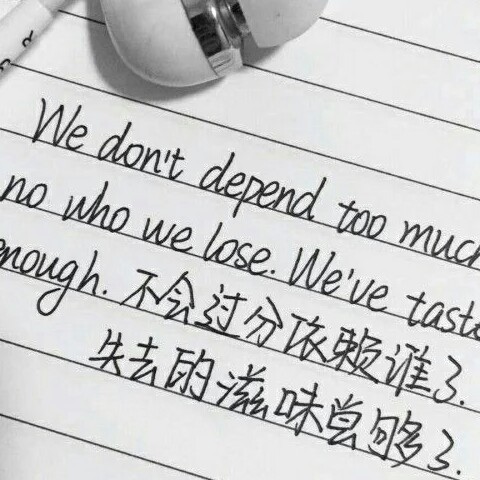 We don't depend too much
no who we lose. We've taste
enough. 不会过分依赖谁了.
失去的滋味尝够了.